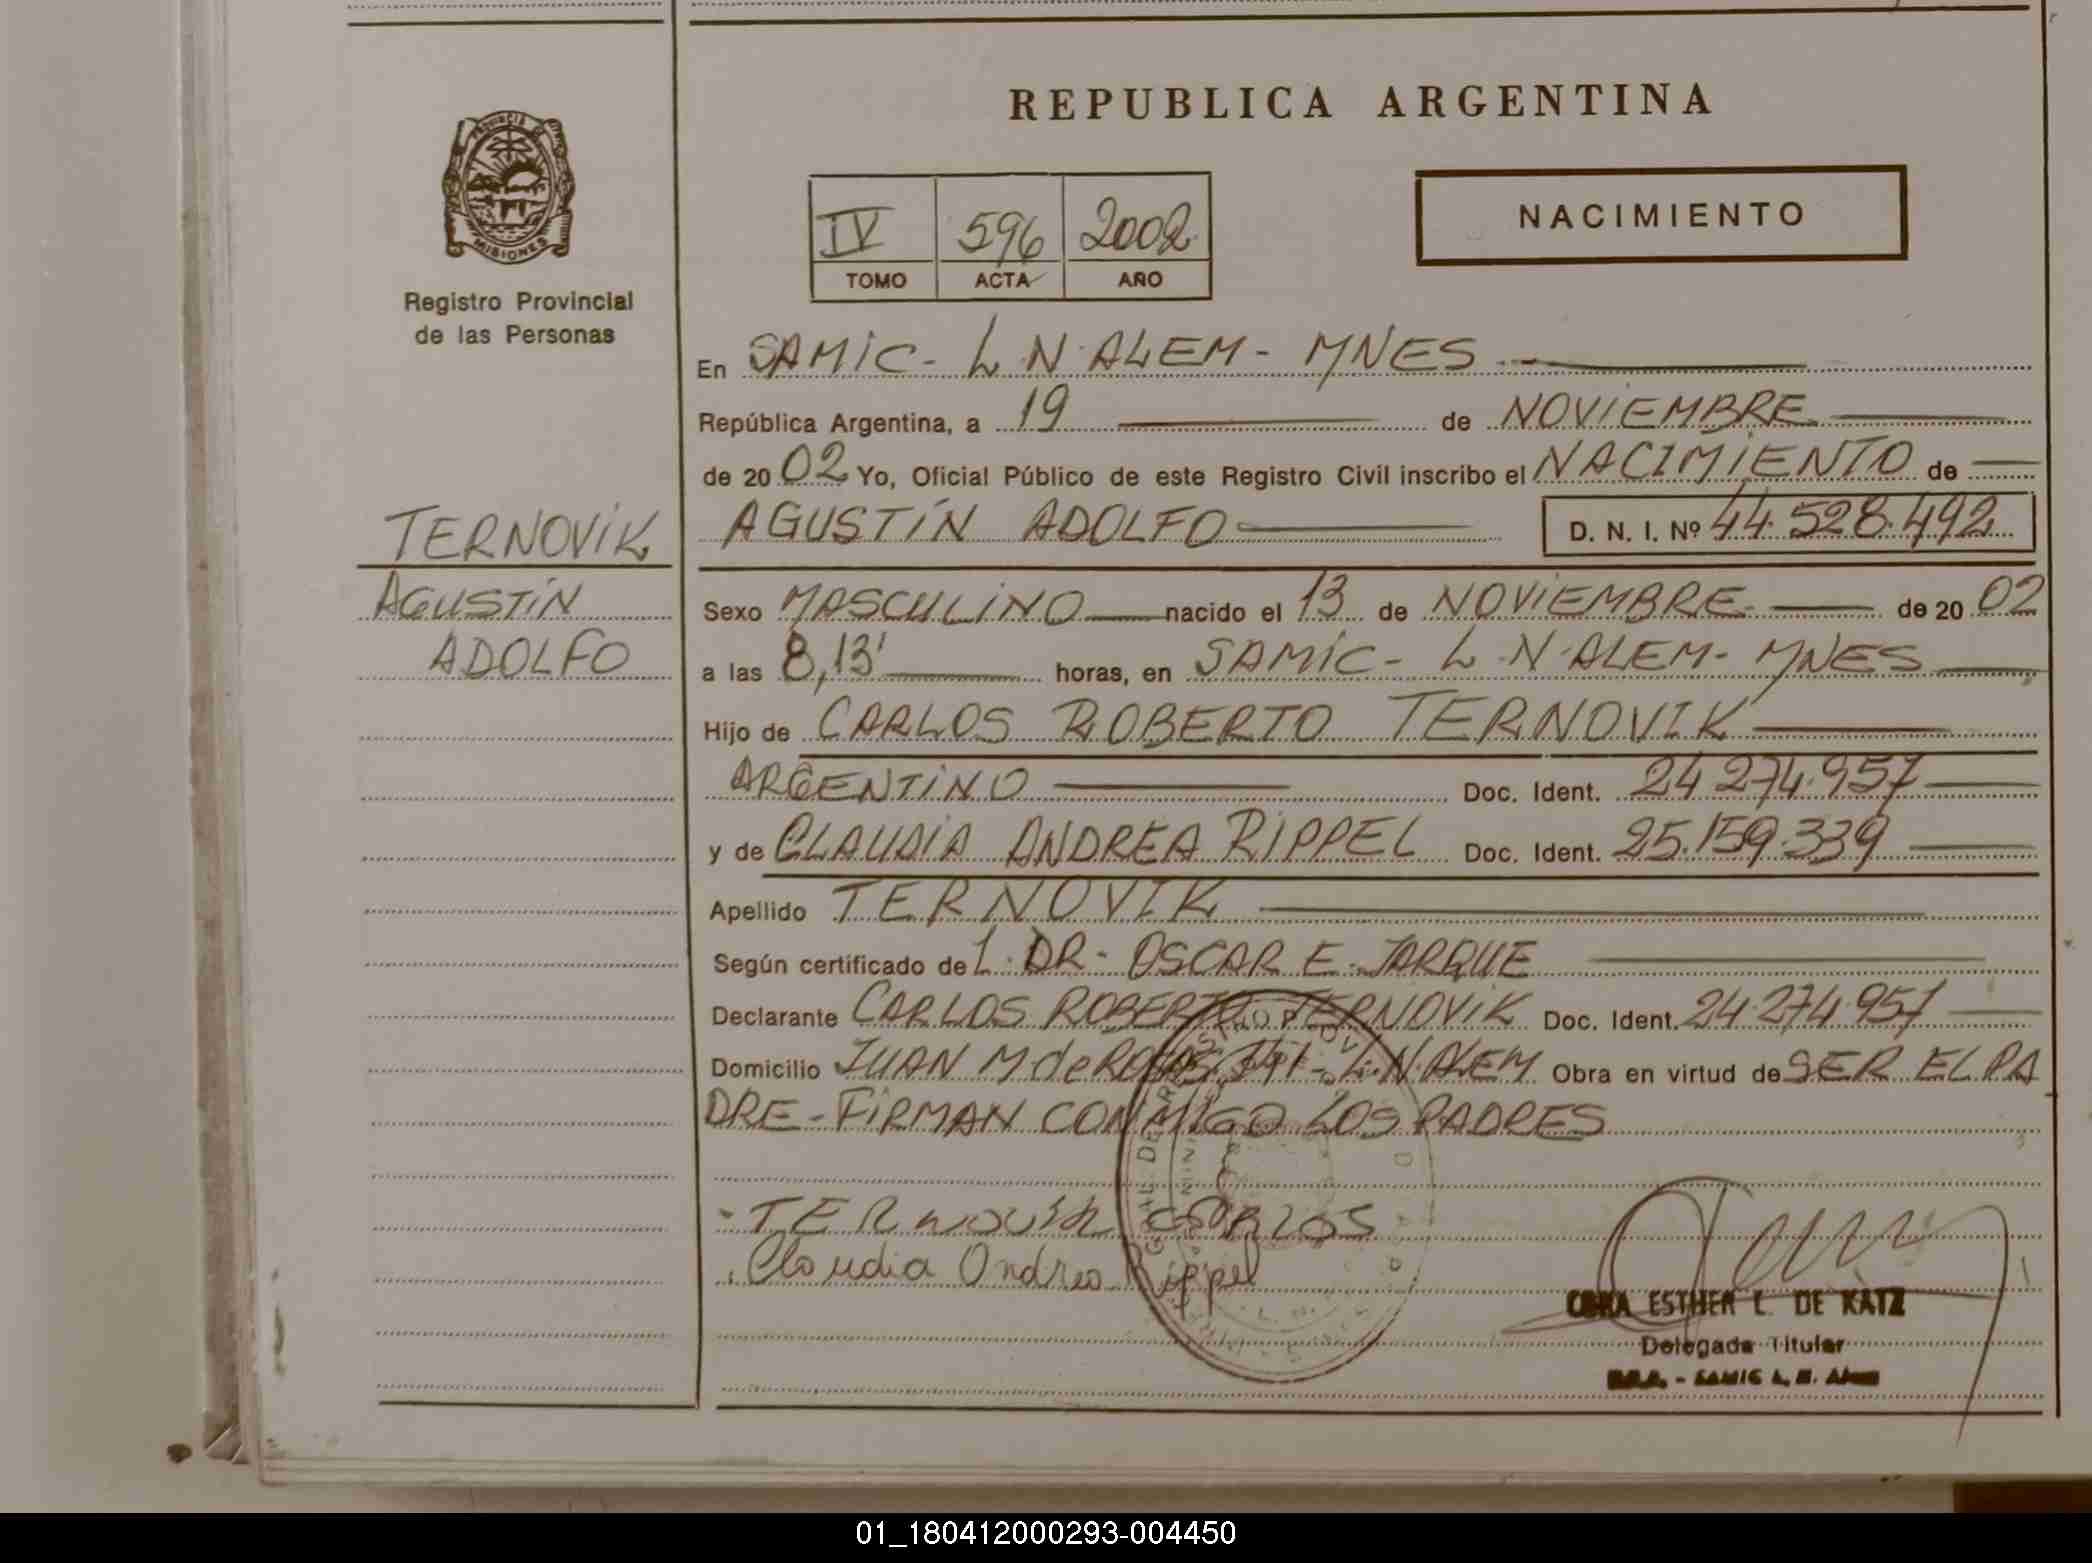 REPUBLICA ARGENTINA
PROVINCIA DE
MISIONES
Registro Provincial
de las Personas
IV 596 2002
TOMO ACTA AÑO
NACIMIENTO
En SAMIC - L.N. ALEM - MNES
República Argentina, a 19 de NOVIEMBRE
de 2002 Yo, Oficial Público de este Registro Civil inscribo el NACIMIENTO de
TERNOVIK
AGUSTÍN ADOLFO D. N. I. Nº 44.528.492
AGUSTÍN
ADOLFO
Sexo MASCULINO nacido el 13 de NOVIEMBRE de 2002
a las 8,13' horas, en SAMIC - L.N. ALEM - MNES
Hijo de CARLOS ROBERTO TERNOVIK
ARGENTINO Doc. Ident. 24.274.957
y de CLAUDIA ANDREA RIPPEL Doc. Ident. 25.159.339
Apellido TERNOVIK
Según certificado de DR. OSCAR E. JARQUE
Declarante CARLOS ROBERTO TERNOVIK Doc. Ident. 24.274.957
Domicilio JUAN M de ROSAS - L.N. ALEM Obra en virtud de SER EL PA
DRE - FIRMAN CONMIGO LOS PADRES
TERNOVIK CARLOS
Claudia Andrea Rippel
ESTHER L. DE KATZ
Delegada Titular
SAMIC L. N. Alem
01_180412000293-004450